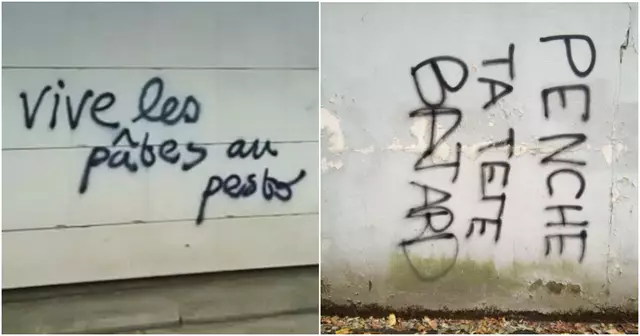 vive les
pâtes au
pesto
PENCHE
TA TETE
BATARD